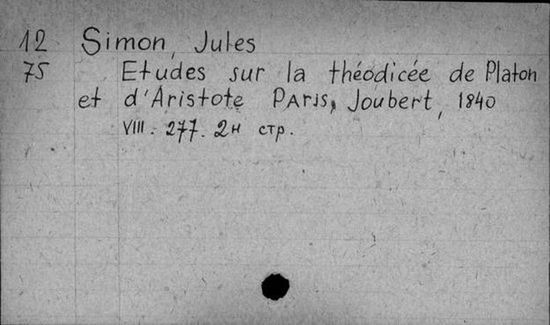 12 Simon, Jules
75 Etudes sur la théodicée de Platon
et d'Aristote Paris, Joubert, 1840
VIII. 277. 2н стр.